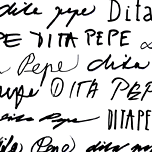 dita pepe Dita
PE DITA PEPE
Pepe dita
DITA PEPE
dita Pepe DITAPE
dita Pepe dita